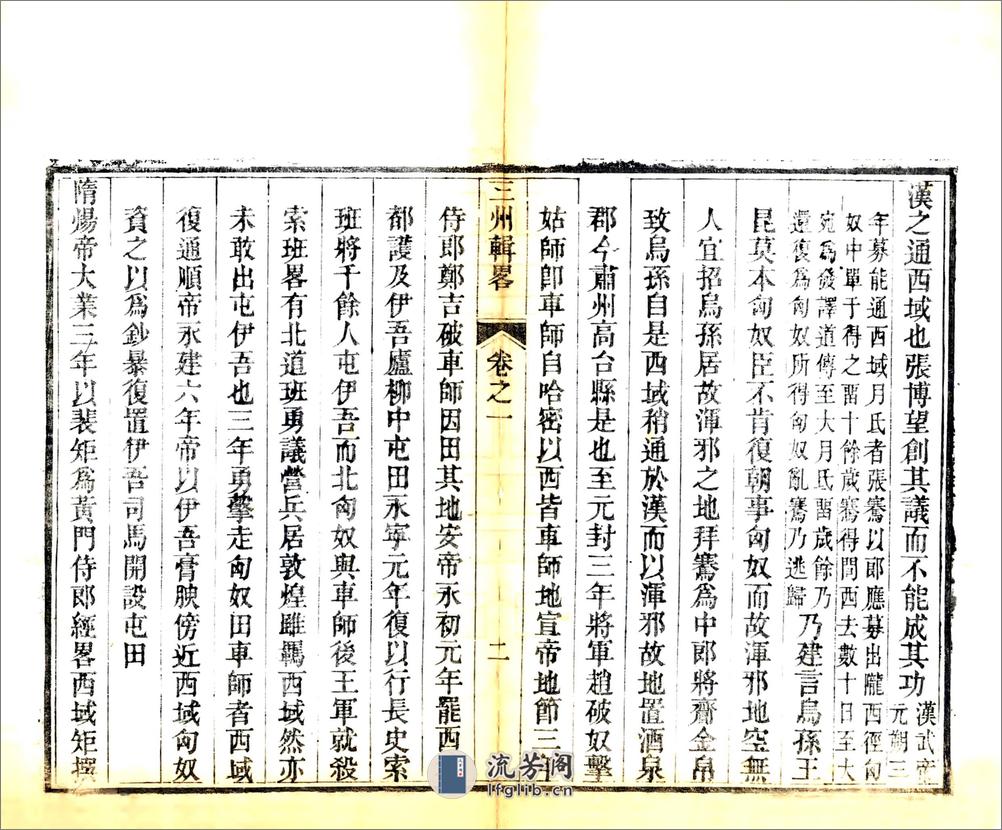 漢之通西域也張博望創其議而不能成其功漢武帝元朔三
年募能通西域月氏者張騫以郎應募出隴西徑匈
奴中單于得之畱十餘歲騫得間西去數十日至大
宛為發譯道傳至大月氐畱歲餘乃
還復為匈奴所得匈奴亂騫乃逃歸乃建言烏孫王
昆莫本匈奴臣不肯復朝事匈奴而故渾邪地空無
人宜招烏孫居故渾邪之地拜騫為中郎將齎金帛
致烏孫自是西域稍通於漢而以渾邪故地置酒泉
郡今肅州高台縣是也至元封三年將軍趙破奴擊
姑師卽車師自哈密以西皆車師地宣帝地節三年
三州輯畧
卷之一
二
侍郎鄭吉破車師因田其地安帝永初元年罷西
都護及伊吾廬柳中屯田永寧元年復以行長史索
班將千餘人屯伊吾而北匈奴與車師後王軍就殺
索班畧有北道班勇議營兵居敦煌雖羈西域然亦
未敢出屯伊吾也三年勇擊走匈奴田車師者西域
復通順帝永建六年帝以伊吾膏腴傍近西域匈奴
資之以爲鈔暴復置伊吾司馬開設屯田
隋煬帝大業三年以裴矩爲黃門侍郎經畧西域矩撰
流芳阁
lfglib.cn